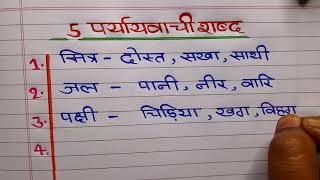 5 पर्यायवाची शब्द
1. मित्र - दोस्त , सखा , साथी
2. जल - पानी , नीर , वारि
3. पक्षी - चिड़िया , खग , विहग
4.